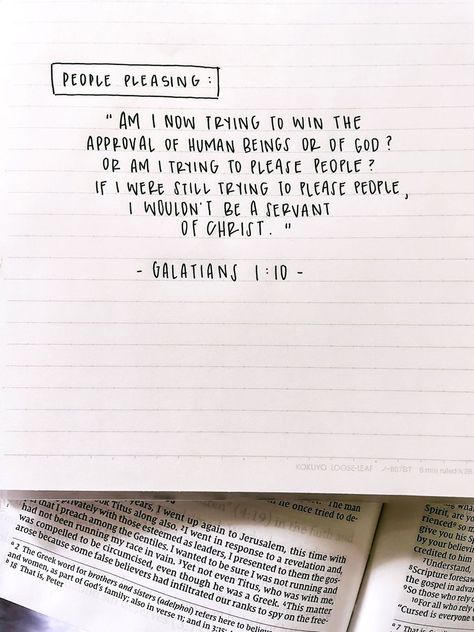 PEOPLE PLEASING :
" AM I NOW TRYING TO WIN THE
APPROVAL OF HUMAN BEINGS OR OF GOD?
OR AM I TRYING TO PLEASE PEOPLE?
IF I WERE STILL TRYING TO PLEASE PEOPLE,
I WOULDN'T BE A SERVANT
OF CHRIST. "
- GALATIANS 1:10 -
KOKUYO LOOSE-LEAF
years, I went up again to Jerusalem, this time with
Titus along also. I went in response to a revelation and,
privately with those esteemed as leaders, I presented to them the gos-
that I preach among the Gentiles. I wanted to be sure I was not running and
had not been running my race in vain. Yet not even Titus, who was with me,
was compelled to be circumcised, even though he was a Greek. 4This matter
arose because some false believers had infiltrated our ranks to spy on the free-
a 2 The Greek word for brothers and sisters (adelphoi) refers here to believers,
and women, as part of God's family; also in verse 11; and in 3:15;
b 18 That is, Peter
he once tried to de-
Spirit, are you
give you his
by your believing
credited to him
7Understand,
8Scripture foresaw
the gospel in advance
9So those who rely
10For all who rely
"Cursed is everyone